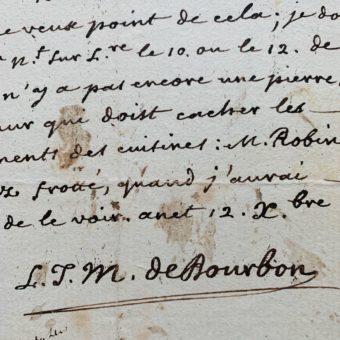 e veux point de cela ; je do
n.t sur L.re le 10. ou le 12. de
n'y a pas encore une pierre,
ur que doist cacher les
ments des cuisines : M. Robin
frotté, quand j'aurai
de le voir. anet 12. X.bre
L. J. M. de Bourbon